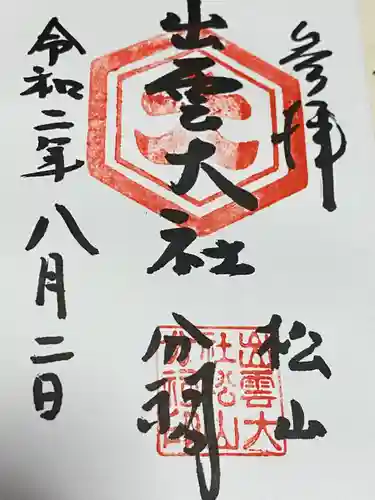 参拝
出雲大社
松山
分祠
令和二年 八月二日
出雲大
社松山
分祠印